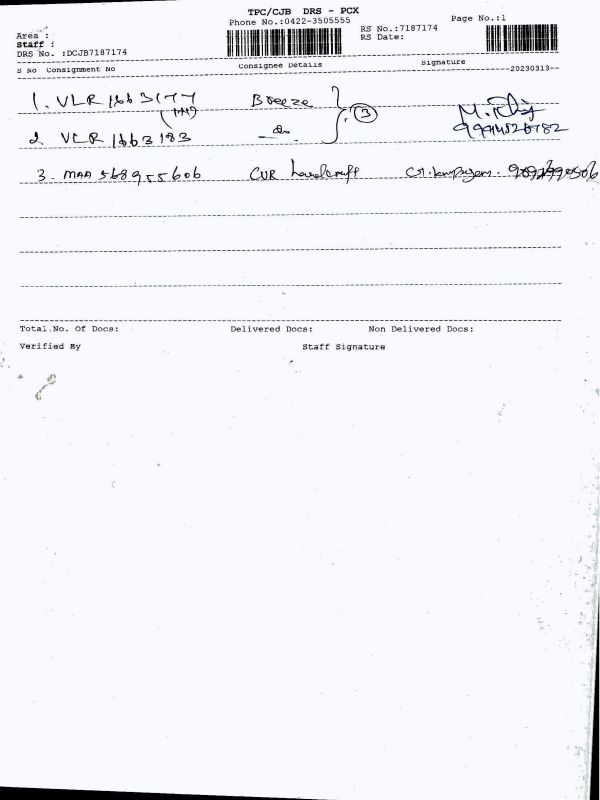 TPC/CJB DRS - PCX
Phone No.:0422-3505555
Page No.:1
Area :
Staff :
DRS No. :DCJB7187174
RS No.:7187174
RS Date:
S No Consignment No Consignee Details Signature
--20230313--
1. VLR 1663177 Breeze
2. VLR 1663183 - do - } 3
9994526782
3. MAA 568955606 CUR handcraft
Total No. Of Docs: Delivered Docs: Non Delivered Docs:
Verified By Staff Signature